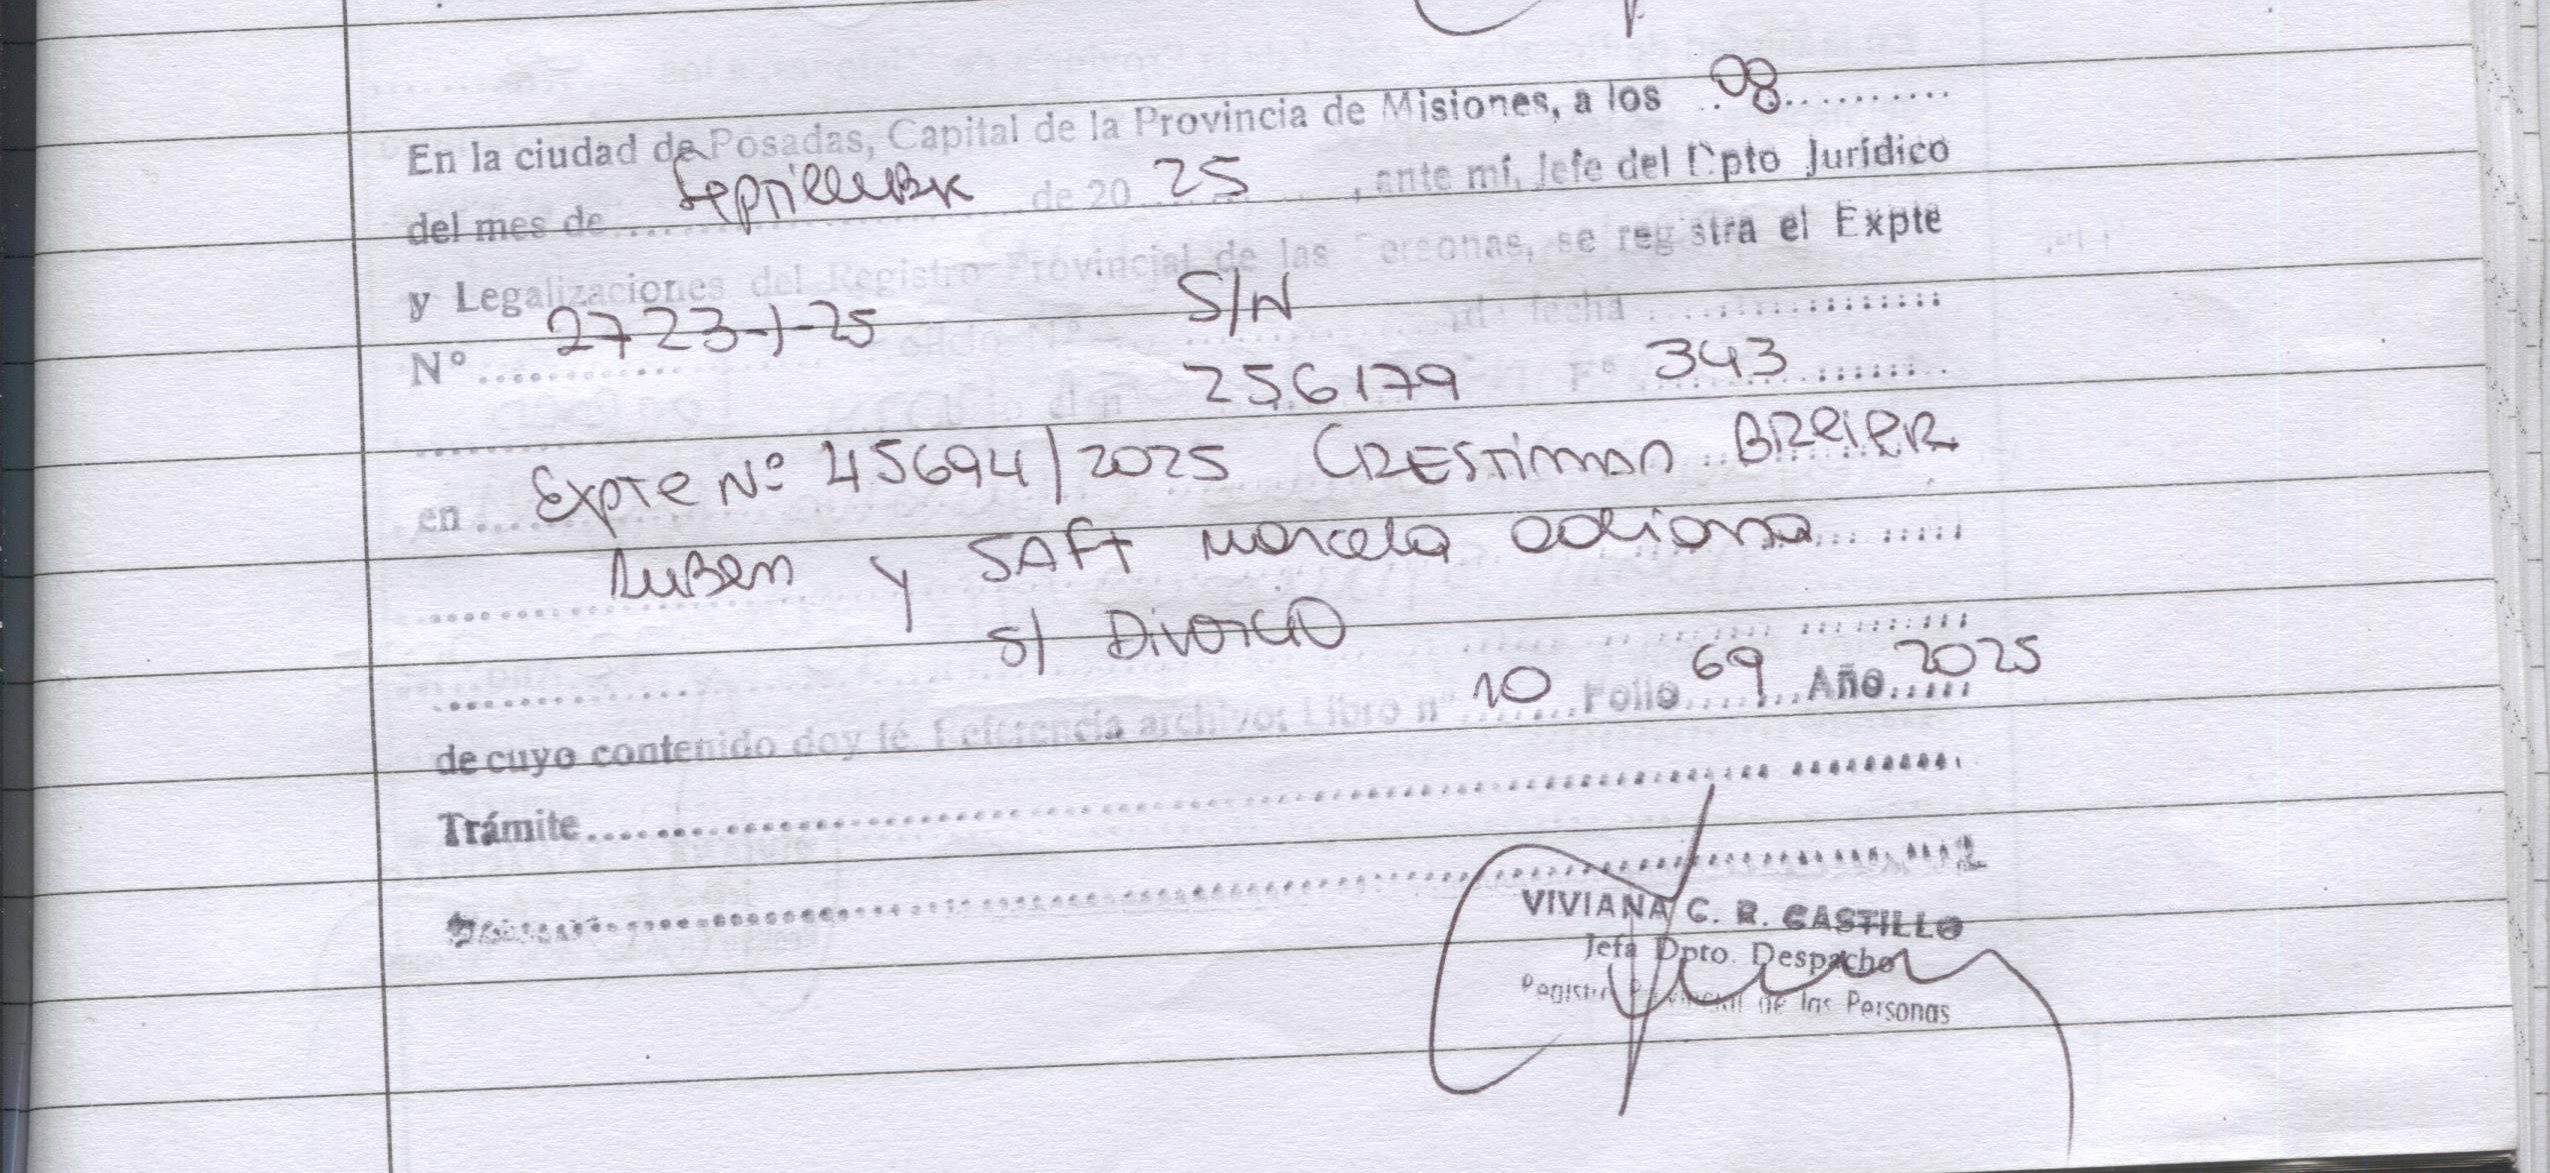 En la ciudad de Posadas, Capital de la Provincia de Misiones, a los 08
del mes de Septiembre de 20 25, ante mí, Jefe del Dpto Jurídico
y Legalizaciones del Registro Provincial de las Personas, se registra el Expte
N° 2723-J-25 Oficio N° S/N de fecha
256179 F° 343
en Expte N° 45694/2025 BREIER
Ruben y SAFT Marcela
s/ Divorcio
de cuyo contenido doy fé Referencia archivo: Libro n° 10 Folio 69 Año 2025
Trámite
VIVIANA C. R. CASTILLO
Jefa Dpto. Despacho
Registro Provincial de las Personas